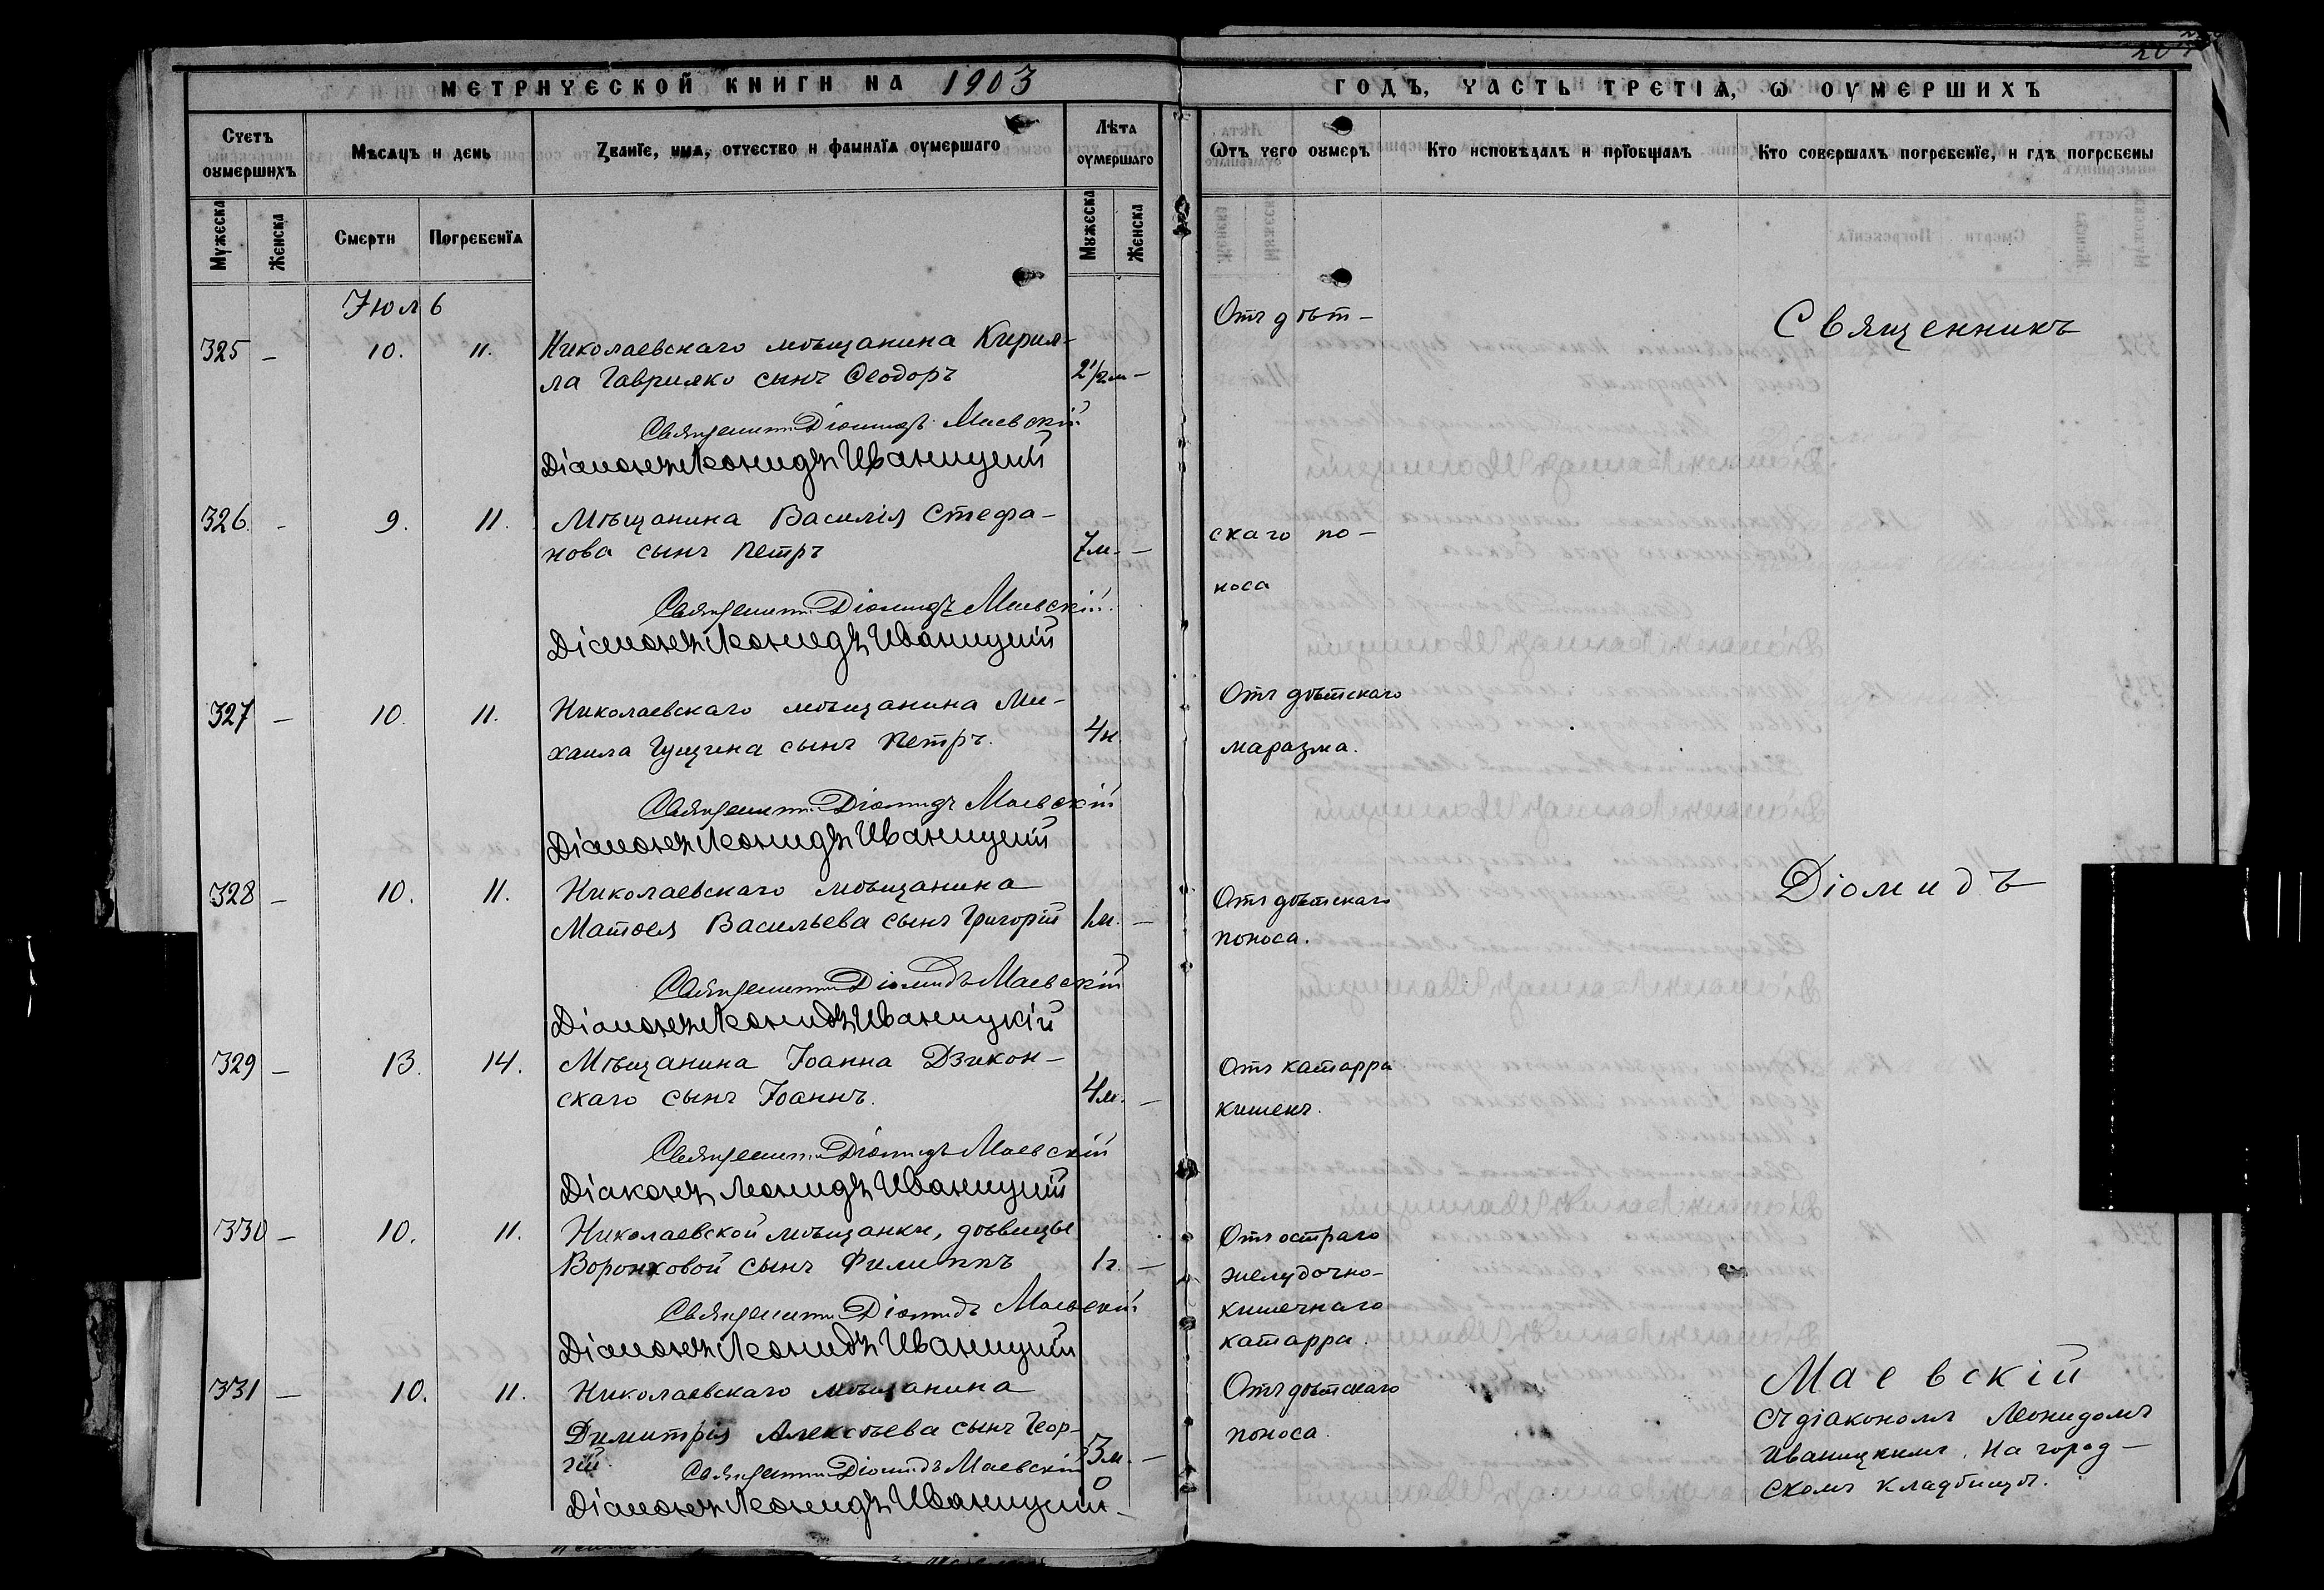 МЕТРИЧЕСКОЙ КНИГИ НА 1903
ГОДЪ, ЧАСТЬ ТРЕТІѦ, Ѡ ОУМЕРШИХЪ
Счетъ оумершихъ
Мѣсѧцъ и день
Званїе, имѧ, отчество и фамилїѧ оумершаго
Лѣта оумершаго
Ѿтъ чего оумеръ
Кто исповѣдалъ и прїобщалъ
Кто совершалъ погребенїе, и гдѣ погребены
Мужеска
Женска
Смерти
Погребенїѧ
Мужеска
Женска
Іюль
325 — 10. 11. Николаевскаго мѣщанина Кирил-
ла Гавриляко сынъ Ѳеодоръ 2½м —
Отъ дѣт-
Священникъ
Священникъ Діомидъ Маевскій
Діаконъ Леонидъ Иваницкій
326. - 9. 11. Мѣщанина Василія Стефа-
нова сынъ Петръ 7м. —
скаго по-
носа
Священникъ Діомидъ Маевскій
Діаконъ Леонидъ Иваницкій
327 — 10. 11. Николаевскаго мѣщанина Ми-
хаила Гущина сынъ Петръ. 4н
Отъ дѣтскаго
маразма.
Священникъ Діомидъ Маевскій
Діаконъ Леонидъ Иваницкій
328 — 10. 11. Николаевскаго мѣщанина
Матѳея Васильева сынъ Григорій 1м. —
Отъ дѣтскаго
поноса.
Діомидъ
Священникъ Діомидъ Маевскій
Діаконъ Леонидъ Иваницкій
329 — 13. 14. Мѣщанина Іоанна Дзикон-
скаго сынъ Іоаннъ. 4м. —
Отъ катарра
кишекъ.
Священникъ Діомидъ Маевскій
Діаконъ Леонидъ Иваницкій
330 — 10. 11. Николаевской мѣщанки, дѣвицы
Воронковой сынъ Филиппъ 1г. —
Отъ остраго
желудочно-
кишечнаго
катарра.
Священникъ Діомидъ Маевскій
Діаконъ Леонидъ Иваницкій
331 — 10. 11. Николаевскаго мѣщанина
Димитрія Алексѣева сынъ Геор-
гій. 3м. —
Отъ дѣтскаго
поноса.
Священникъ Діомидъ Маевскій
Діаконъ Леонидъ Иваницкій
Маевскій
съ діакономъ Леонидомъ
Иваницкимъ. На город-
скомъ кладбищѣ.